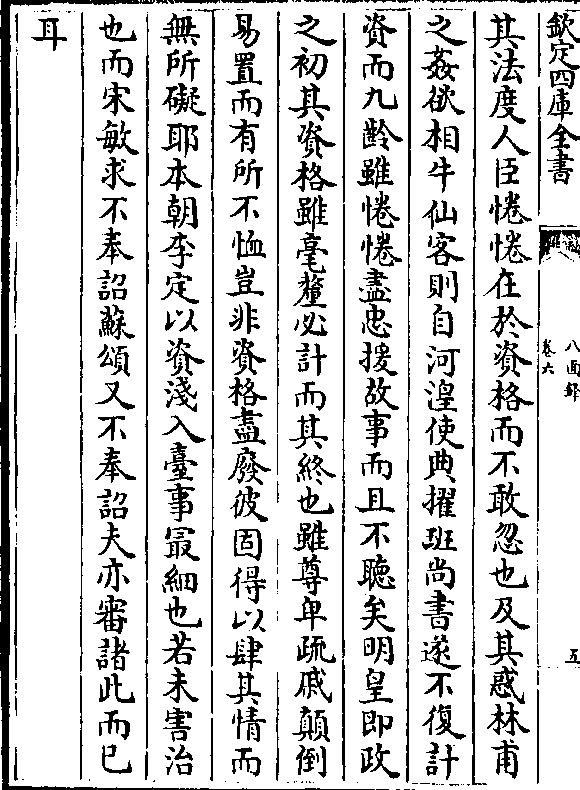 欽定四庫全書
八面鋒
卷六
五
其法度人臣惓惓在於資格而不敢忽也及其惑林甫
之姦欲相牛仙客則自河湟使典擢班尚書遂不復計
資而九齡雖惓惓盡忠援故事而且不聽矣明皇即政
之初其資格雖毫釐必計而其終也雖尊卑疏戚顛倒
易置而有所不恤豈非資格盡廢彼固得以肆其情而
無所礙耶本朝李定以資淺入臺事最細也若未害治
也而宋敏求不奉詔蘇頌又不奉詔夫亦審諸此而已
耳